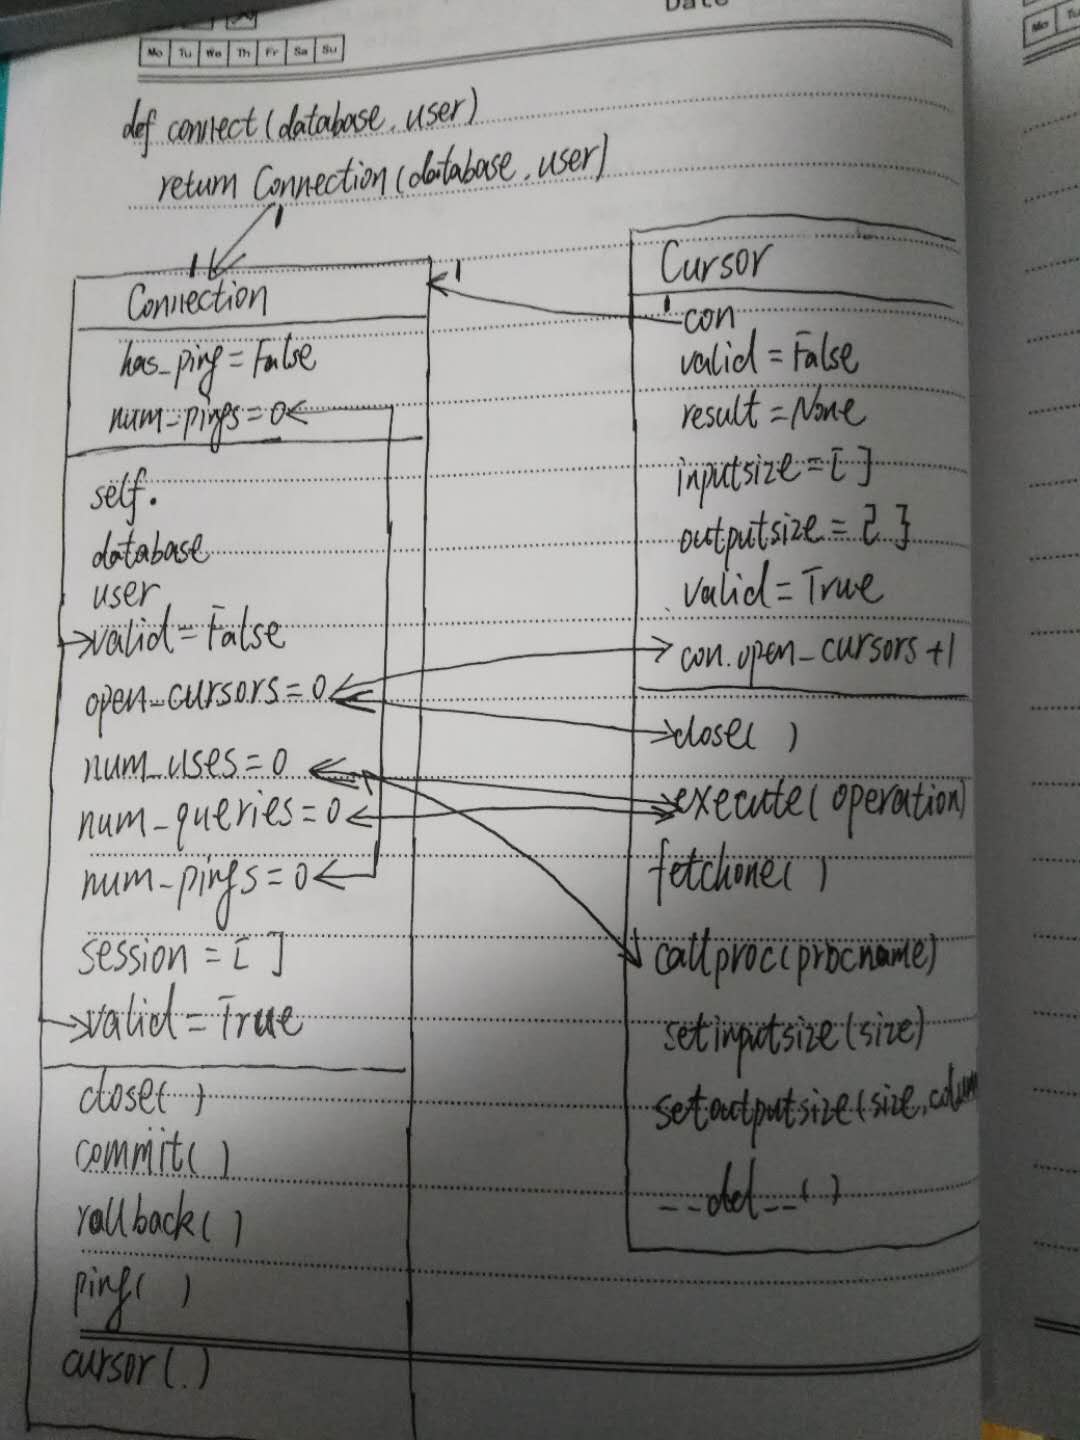 Date
Mo Tu We Th Fr Sa Su
Mo Tu
def connect(database, user)
return Connection(database, user)
Connection
has_ping = False
num_pings = 0
self.
database
user
valid = False
open_cursors = 0
num_uses = 0
num_queries = 0
num_pings = 0
session = [ ]
valid = True
close( )
commit( )
rollback( )
ping( )
cursor(.)
Cursor
con
valid = False
result = None
inputsize = [ ]
outputsize = { }
valid = True
con.open_cursors +1
close( )
execute(operation)
fetchone( )
callproc(procname)
setinputsize(size)
setoutputsize(size, colum
__del__( )